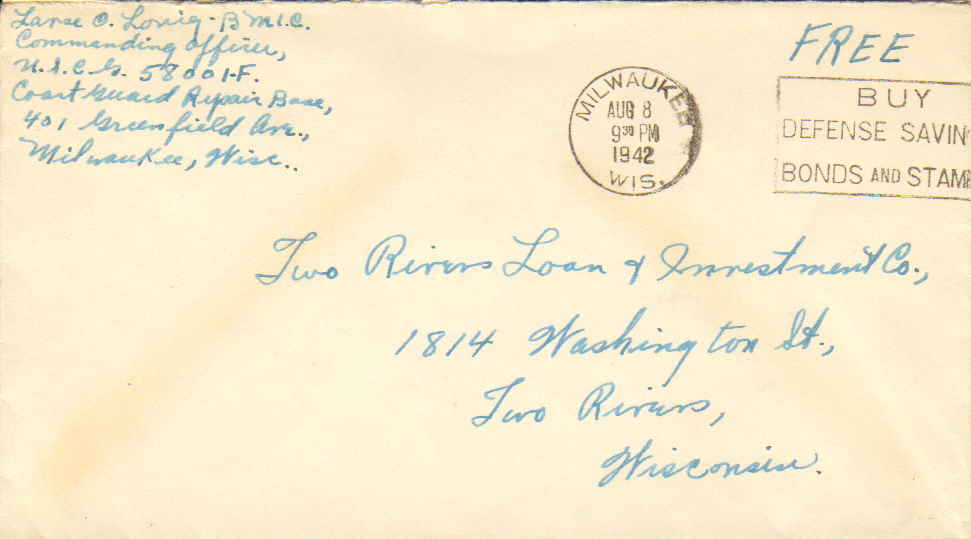 Larse O. Lovig - B M.1.C.
Commanding Officer,
U.S.C.G. 58001-F.
Coast Guard Repair Base,
401 Greenfield Ave.,
Milwaukee, Wisc..
FREE
MILWAUKEE
AUG 8
9 30 PM
1942
WIS.
BUY
DEFENSE SAVIN
BONDS AND STAM
Two Rivers Loan & Investment Co.,
1814 Washington St.,
Two Rivers,
Wisconsin.